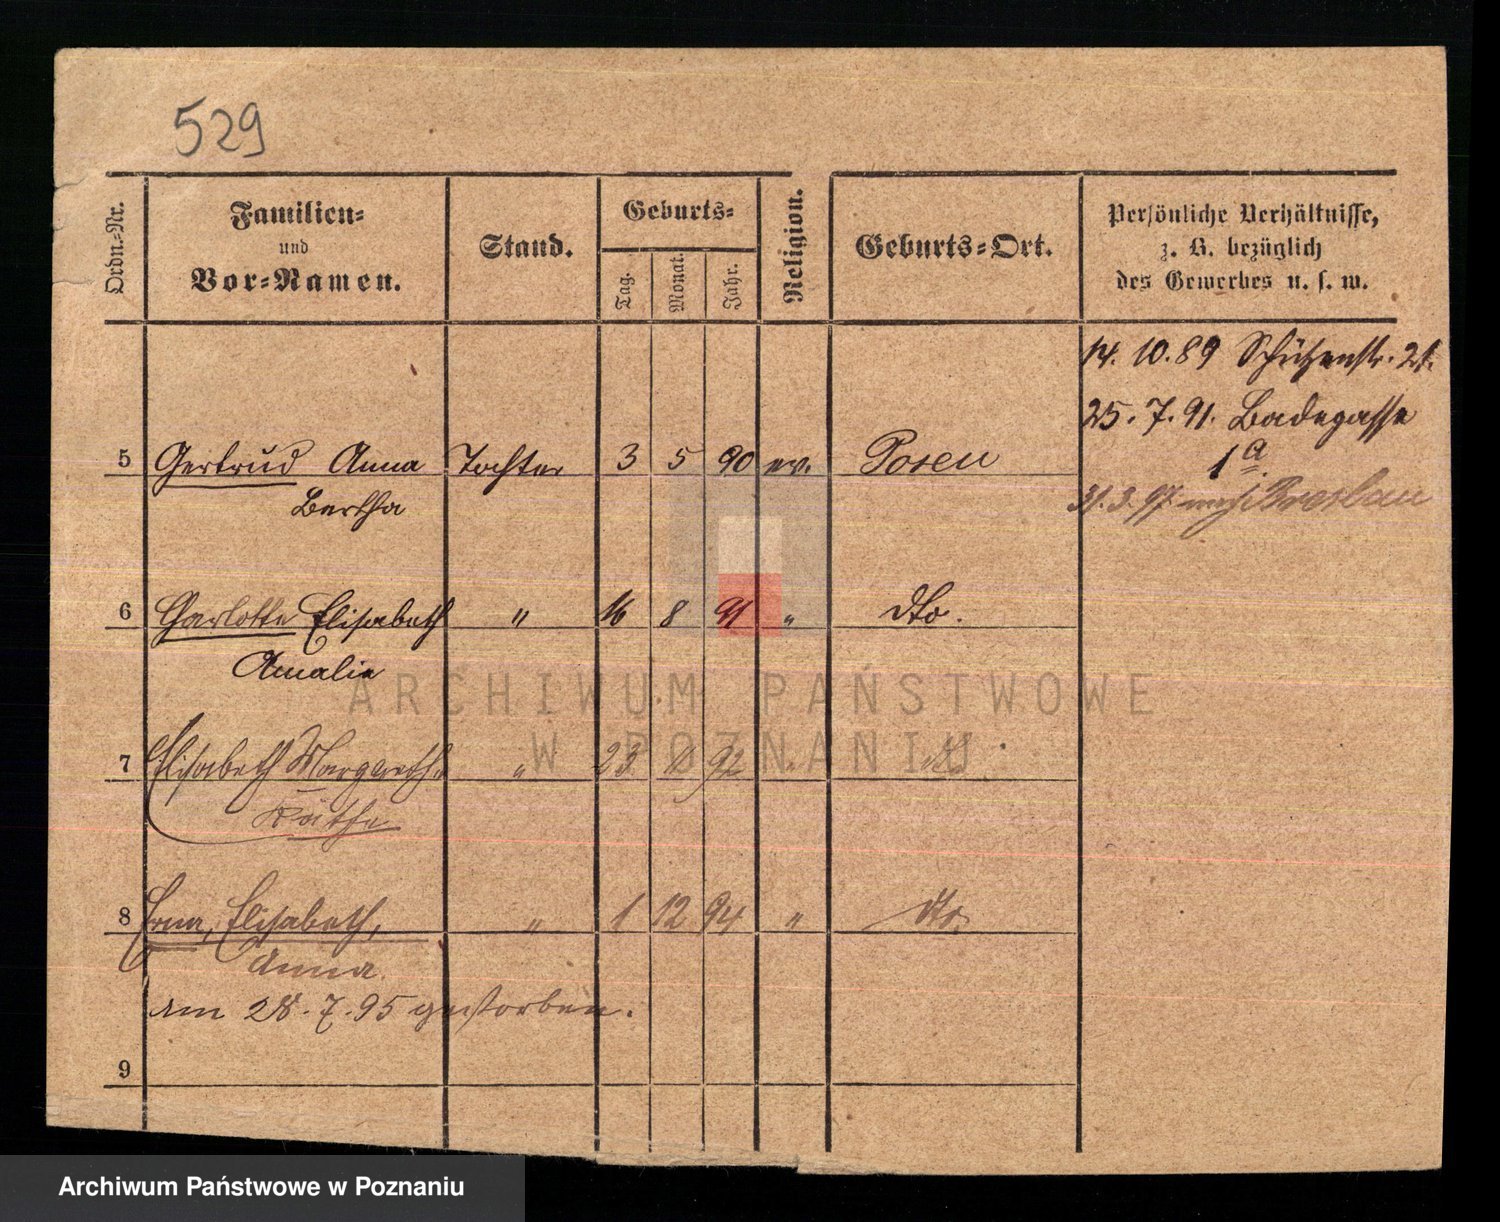 529
Ordn.-Nr.
Familien-
und
Vor-Namen.
Stand.
Geburts-
Tag.
Monat.
Jahr.
Religion.
Geburts-Ort.
Persönliche Verhältnisse,
z. B. bezüglich
des Gewerbes u. s. w.
14. 10. 89 Schützenstr. 21.
25. 7. 91. Badegasse
1a
31. 3. 97 nach Breslau
5 Gertrud Anna Tochter 3 5 90 ev. Posen
Bertha
6 Charlotte Elisabeth " 16 8 91 " dto.
Amalie
7 Elisabeth Margarethe " 23 92 "
Käthe
8 Erna, Elisabeth, " 1 12 94 " dto.
Anna.
am 28. 7. 95 gestorben.
9
ARCHIWUM PAŃSTWOWE
W POZNANIU
Archiwum Państwowe w Poznaniu